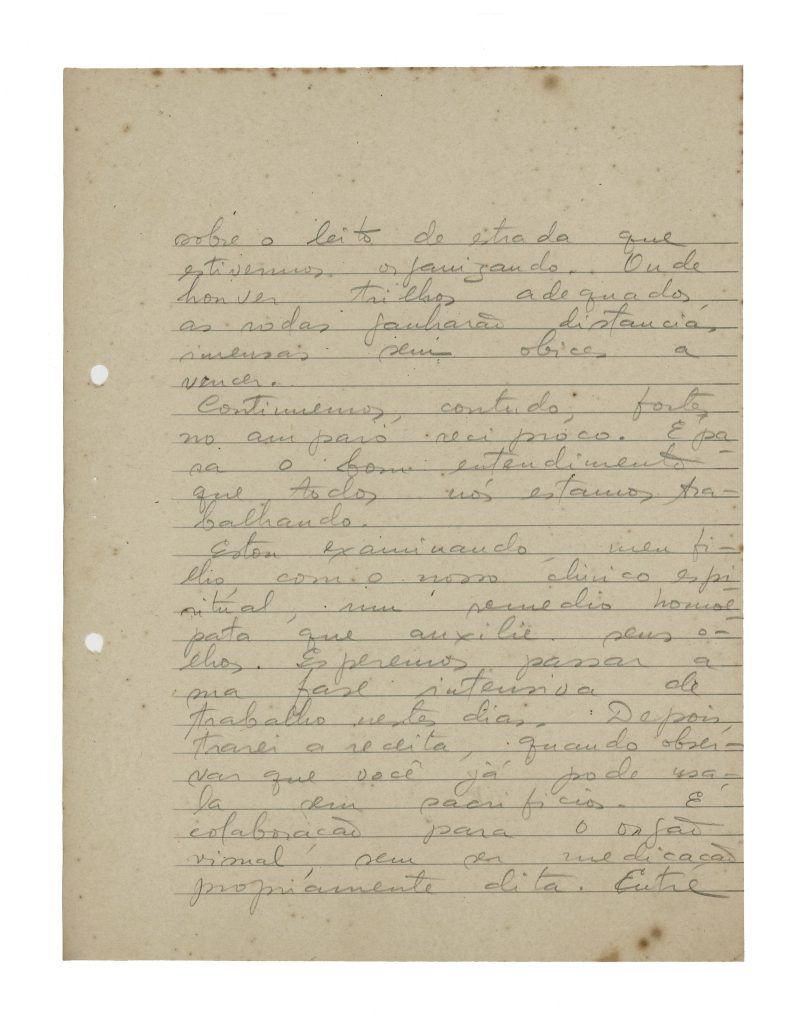 sobre o leito de estrada que
estivermos organizando. Onde
houver trilhos adequados,
as rodas ganharão distancias
imensas sem obices a
vencer.
Continuemos, contudo, fortes
no amparo reciproco. É pa-
ra o bom entendimento
que todos nós estamos tra-
balhando.
Estou examinando, meu fi-
lho, com o nosso clinico espi-
ritual, um remedio homeo-
pata que auxilie seus o-
lhos. Esperemos passar a
sua fase intensiva de
trabalho nestes dias. Depois,
trarei a receita, quando obser-
var que você já pode usa-
la sem sacrificios. É
colaboração para o orgão
visual, sem ser medicação
propriamente dita. Entre